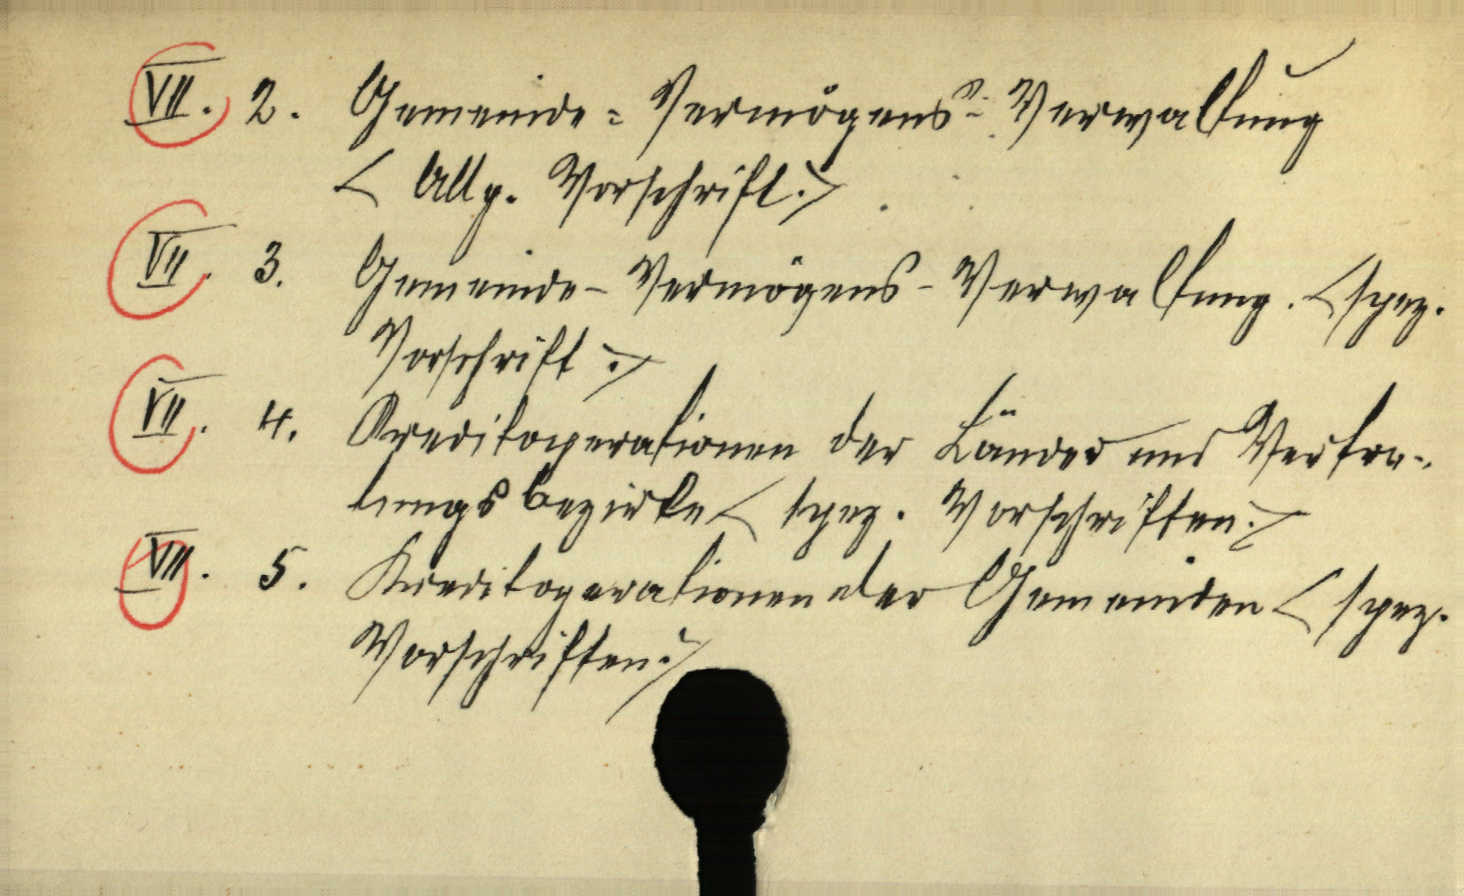 VII. 2. Gemeinde-Vermögens-Verwaltung
< Allg. Vorschrift.>
VII. 3. Gemeinde-Vermögens-Verwaltung. <spez.
Vorschrift.>
VII. 4. Kreditoperationen der Länder und Vertre-
tungsbezirke < spez. Vorschriften.>
VII. 5. Kreditoperationen der Gemeinden < spez.
Vorschriften.>